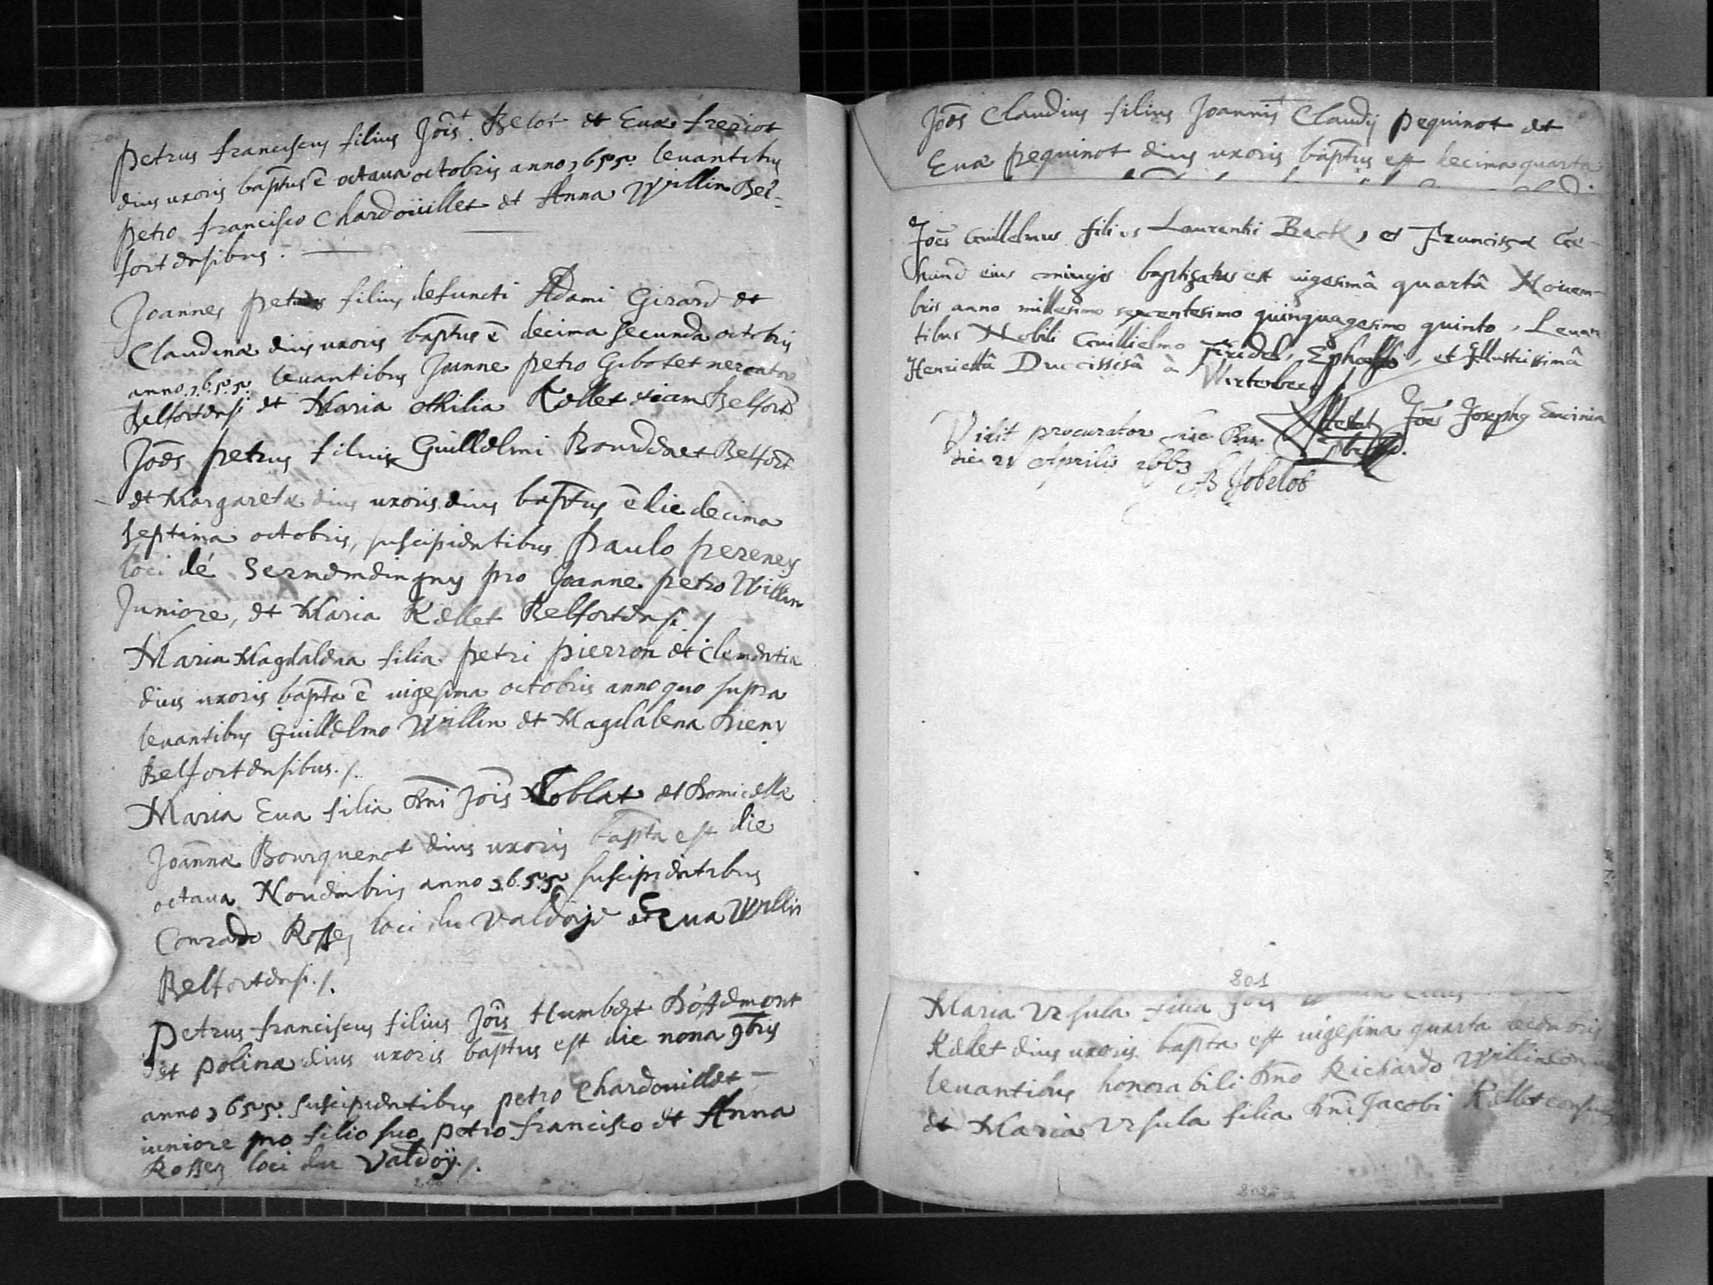 Petrus franciscus filius Jois Belot et Eua freriot
eius uxoris baptus ē octaua octobris anno 1655 leuantibus
petro francisco chardoüillet et Anna Willin Bel=
fortensibus.
Joannes petrus filius defuncti Adami Girard et
Claudinæ eius uxoris baptus ē decima secunda octobris
anno 1655 leuantibus Joanne petro Gibotet
Belfortensi et Maria othilia Kellet etiam Belfort
Joēs petrus filius Guillelmi Bourdet Belfort
et Margaretæ eius uxoris eius baptus ē die decima
septima octobris, suscipientibus Paulo
loci dé Sermemdingny pro Joanne petro Willin
Juniore, et Maria Kellet Belfortensi /
Maria Magdalena filia petri pierron et Clementia
eius uxoris bapta ē uigesima octobris anno quo supra
leuantibus Guillelmo Willin et Magdalena
Belfortensibus./.
Maria Eua filia Dni Jois Noblat et Domicellæ
Joannæ Bourquenot eius uxoris bapta est die
octaua Nouembris anno 1655 suscipientibus
Conrado Rossez loci du valdoye et Eua Willin
Belfortensi./.
Petrus franciscus filius Jois Humbert d'óffemont
et polina eius uxoris baptus est die nona 9bris
anno 1655. suscipientibus petro Chardouillet
iuniore pro filio suo petro francisco et Anna
Rossez loci du Valdoÿ./.
Joēs Claudius filius Joannis Claudij pequinot et
Euæ pequinot eius uxoris baptus est decima quarta
Joēs Guillelmus filius Laurentii Back, et Franciscæ
eius coniugis baptizatus est uigesimâ quartâ Nouem-
bris anno millesimo sexcentesimo quinquagesimo quinto, Leuan
tibus Nobili Guillielmo, et Illustrissimâ
Henriettâ Duccissâ à Wirtenberg
Attestor Joēs Josephus
Visit procurator
die 21 Aprilis 1663
Jobelot
801
Maria Ursula filia Jois
Kellet eius uxoris bapta est uigesima quarta
leuantibus honorabili Dno Richardo Willin
et Maria Ursula filia Dni Jacobi Kellet